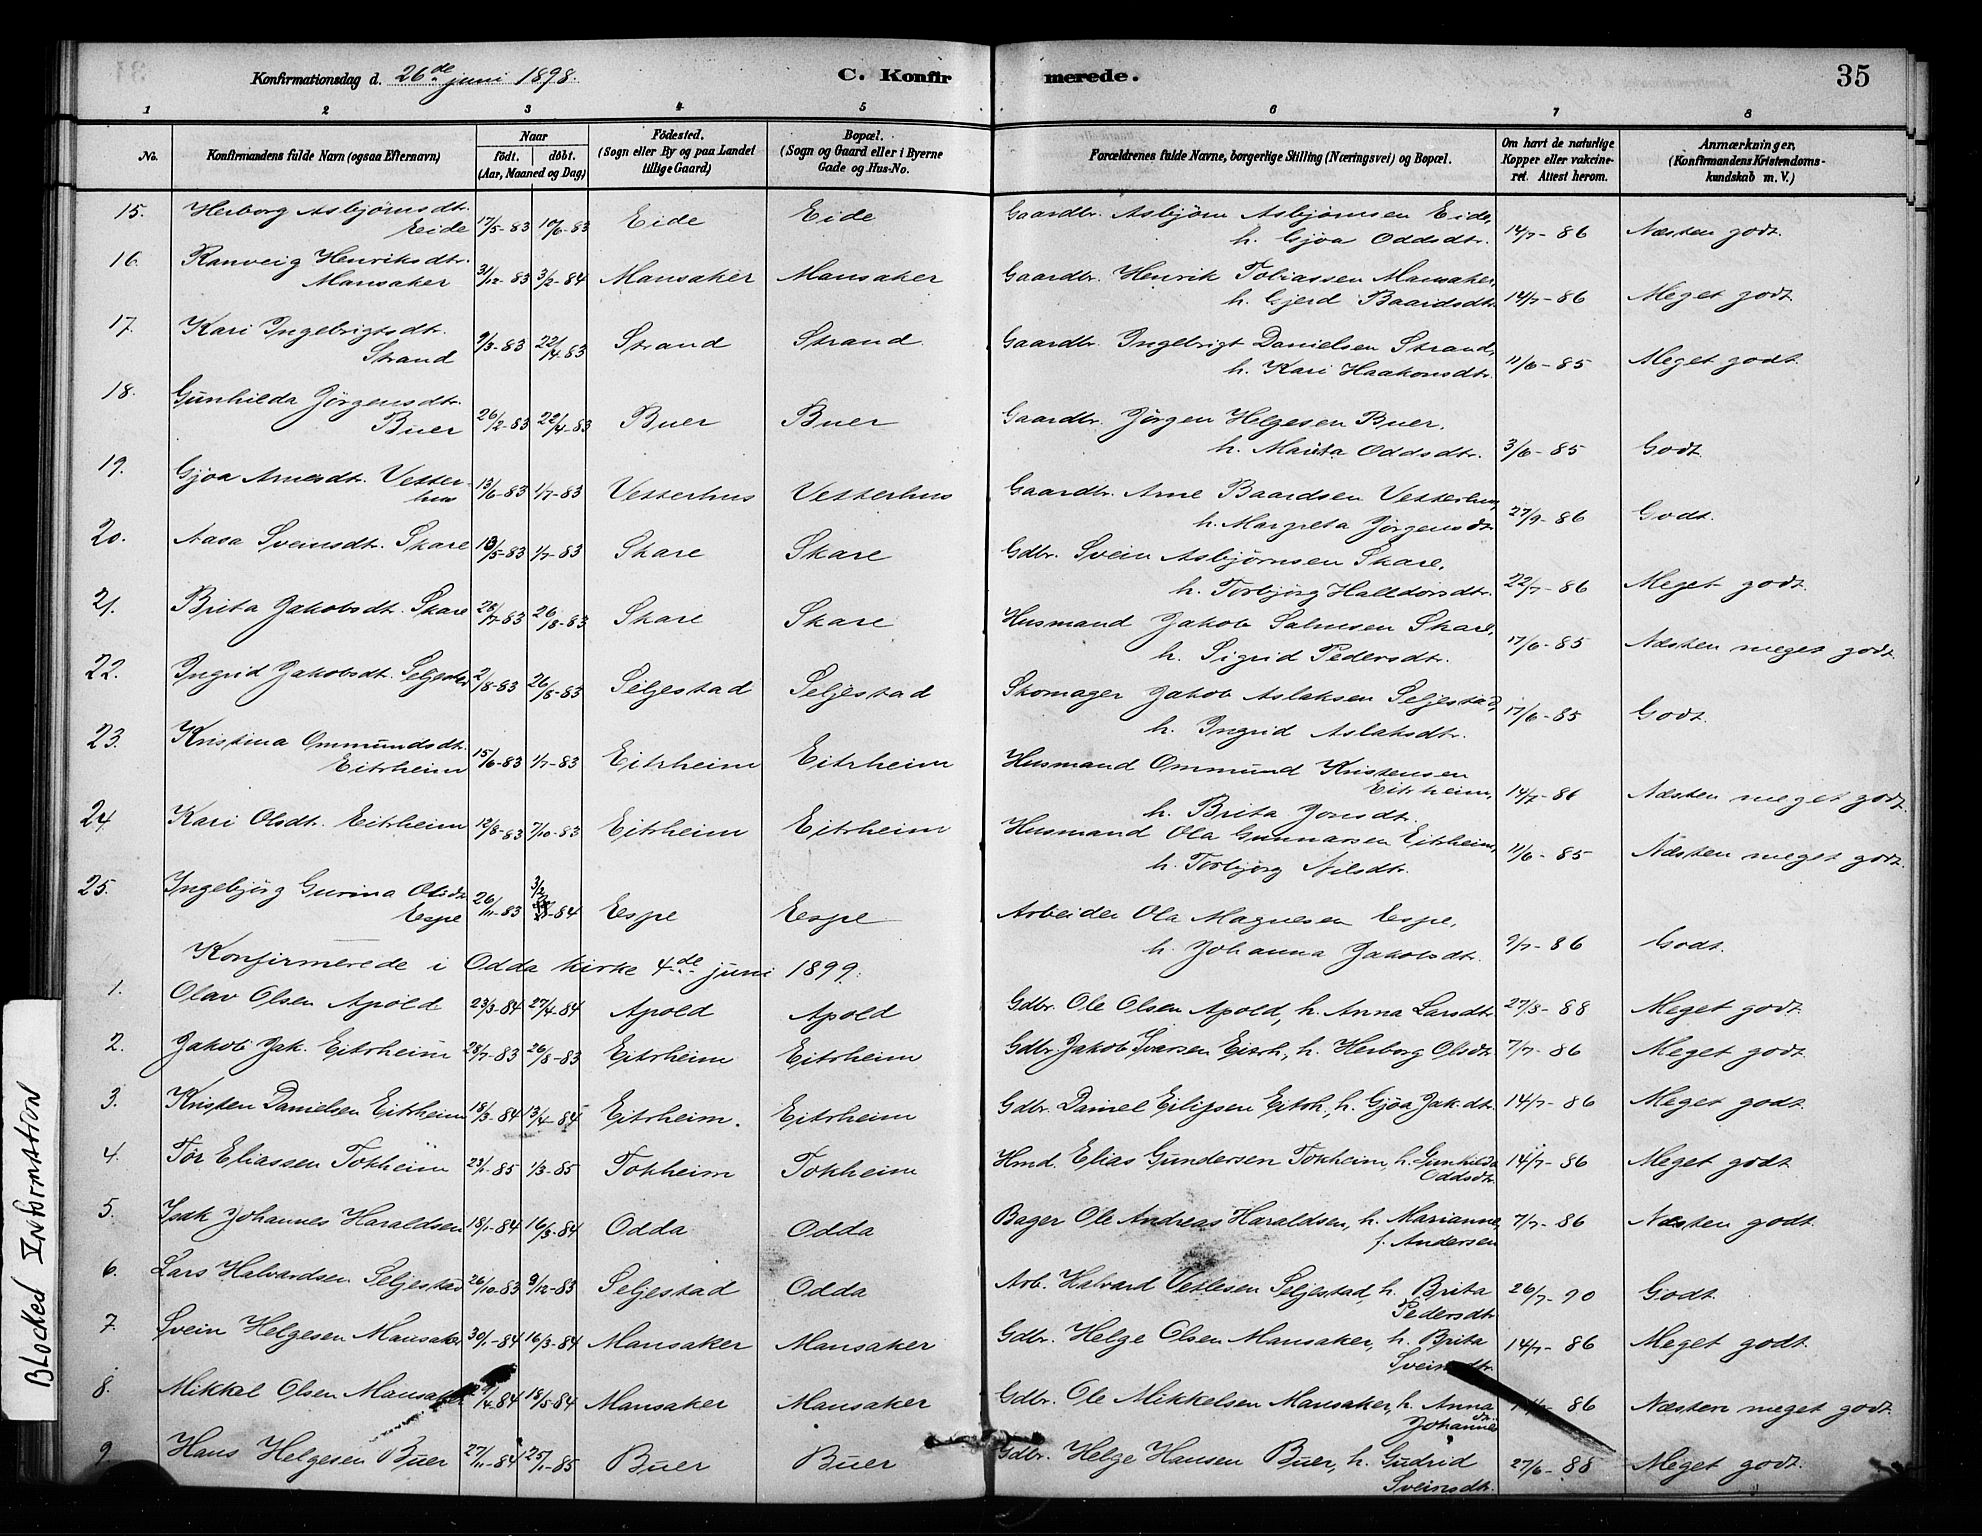 Konfirmationsdag d. 26de juni 1898. C. Konfirmerede. 35
1 2 3 4 5 6 7 8
No. Konfirmandens fulde Navn (ogsaa Efternavn) Naar født. døbt. (Aar, Maaned og Dag) Fødested. (Sogn eller By og paa Landet tillige Gaard) Bopæl. (Sogn og Gaard eller i Byerne Gade og Hus-No. Forældrenes fulde Navne, borgerlige Stilling (Næringsvei) og Bopæl. Om havt de naturlige Kopper eller vakcineret. Attest herom. Anmærkninger. (Konfirmandens Kristendomskundskab m. V.)
15. Herborg Asbjørnsdt. Eide 17/5-83 10/6-83 Eide Eide Gaardbr. Asbjørn Asbjørnsen Eide, h. Gjøa Oddsdtr. 14/7-86 Næsten godt.
16. Ranveig Henriksdtr. Mansaker 31/12-83 3/2-84 Mansaker Mansaker Gaardbr. Henrik Tobiassen Mansaker, h. Gjerd Baardsdt. 14/7-86 Meget godt.
17. Kari Ingebrigtsdt. Strand 9/3-83 22/4-83 Strand Strand Gaardbr. Ingebrigt Danielsen Strand, h. Kari Haakonsdt. 11/6-85 Meget godt.
18. Gunhilda Jørgensdt. Buer 26/2-83 22/4-83 Buer Buer Gaardbr. Jørgen Helgesen Buer. h. Marita Oddsdtr. 3/6-85 Godt.
19. Gjøa Arnesdt. Vetterhus 13/6-83 1/7-83 Vetterhus Vetterhus Gaardbr. Arne Baardsen Vetterhus, h. Margreta Jørgensdt. 27/9-86 Godt.
20. Aasa Sveinsdt. Skare 13/5-83 1/7-83 Skare Skare Gdbr. Svein Asbjørnsen Skare, h. Torbjørg Halldorsdt. 22/7-86 Meget godt.
21. Brita Jakobsdt. Skare 28/7-83 26/8-83 Skare Skare Husmand Jakob Salmsen Skare, h. Sigrid Pedersdt. 17/6-85 Næsten meget godt.
22. Ingrid Jakobsdt. Seljestad 2/8-83 26/8-83 Seljestad Seljestad Skomager Jakob Aslaksen Seljestad, h. Ingrid Aslaksdtr. 17/6-85 Godt.
23. Kristina Ommundsdt. Eitrheim 15/6-83 1/7-83 Eitrheim Eitrheim Husmand Ommund Kristensen Eitrheim, h. Brita Jonsdt. 14/7-86 Næsten meget godt.
24. Kari Olsdt. Eitrheim 12/8-83 7/10-83 Eitrheim Eitrheim Husmand Ola Gunnarsen Eitrheim, h. Torbjørg Nilsdt. 11/6-85 Næsten meget godt
25. Ingebjørg Gurina Olsdt. Espe 26/11-83 3/2-84 Espe Espe Arbeider Ola Magnesen Espe, h. Johanna Jakobsdt. 9/7-86 Godt.
Konfirmerede i Odda kirke 4de juni 1899.
1. Olav Olsen Apold 23/3-84 27/4-84 Apold Apold Gdbr. Ole Olsen Apold, h. Anna Larsdt. 27/8-88 Meget godt.
2. Jakob Jak. Eitrheim 28/7-83 26/8-83 Eitrheim Eitrheim Gdbr. Jakob Iversen Eitrh., h. Herborg Olsdt. 7/7-86 Meget godt.
3. Kristen Danielsen Eitrheim 18/3-84 13/4-84 Eitrheim. Eitrheim Gdbr. Daniel Eilifsen Eitrh., h. Gjøa Jak.dt. 14/7-86 Meget godt.
4. Tor Eliassen Tokheim 23/1-85 1/3-85 Tokheim Tokheim Hmd. Elias Gundersen Tokheim, h. Gunhilda Oddsdt. 14/7-86 Meget godt.
5. Isak Johannes Haraldsen 18/1-84 16/3-84 Odda Odda Bager Ole Andreas Haraldsen, h. Marianne, f. Andersen 7/7-86 Næsten godt.
6. Lars Halvardsen Seljestad 26/10-83 9/12-83 Seljestad Odda Arb. Halvard Vetlesen Seljestad, h. Brita Pedersdt. 26/7-90 Godt.
7. Svein Helgesen Mansaker 30/1-84 16/3-84 Mansaker Mansaker Gdbr. Helge Olsen Mansaker, h. Brita Sveinsdt. 14/7-86 Meget godt.
8. Mikkel Olsen Mansaker /4-84 18/5-84 Mansaker Mansaker Gdbr. Ole Mikkelsen Mansaker, h. Anna Johannesdt. 86 Næsten meget godt.
9. Hans Helgesen Buer 27/11-84 25/1-85 Buer Buer Gdbr. Helge Hansen Buer, h. Gudrid Sveinsdt. 27/6-88 Meget godt.
Blocked Information